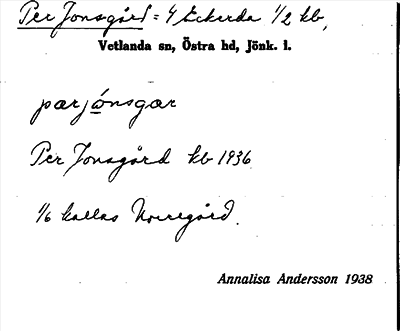 Per Jonsgård = 4 Eckerda 1/2 kb,
Vetlanda sn, Östra hd, Jönk. l.
parjónsgar
Per Jonsgård kb 1936
1/6 kallas Norregård.
Annalisa Andersson 1938